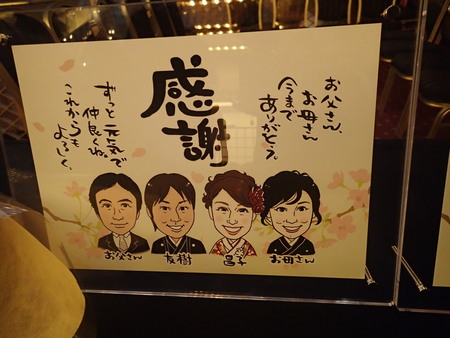 お父さん、
お母さん
今まで
ありがとう。
感謝
ずっと元気で
仲良くね。
これからも
よろしく。
お父さん
友樹
昌子
お母さん